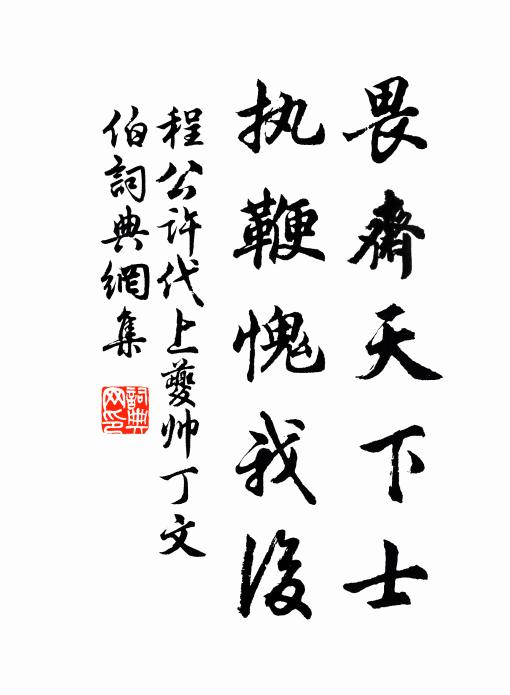 畏齋天下士
执鞭愧我後
程公许代上夔帅丁文
伯詞典網集
詞典网印